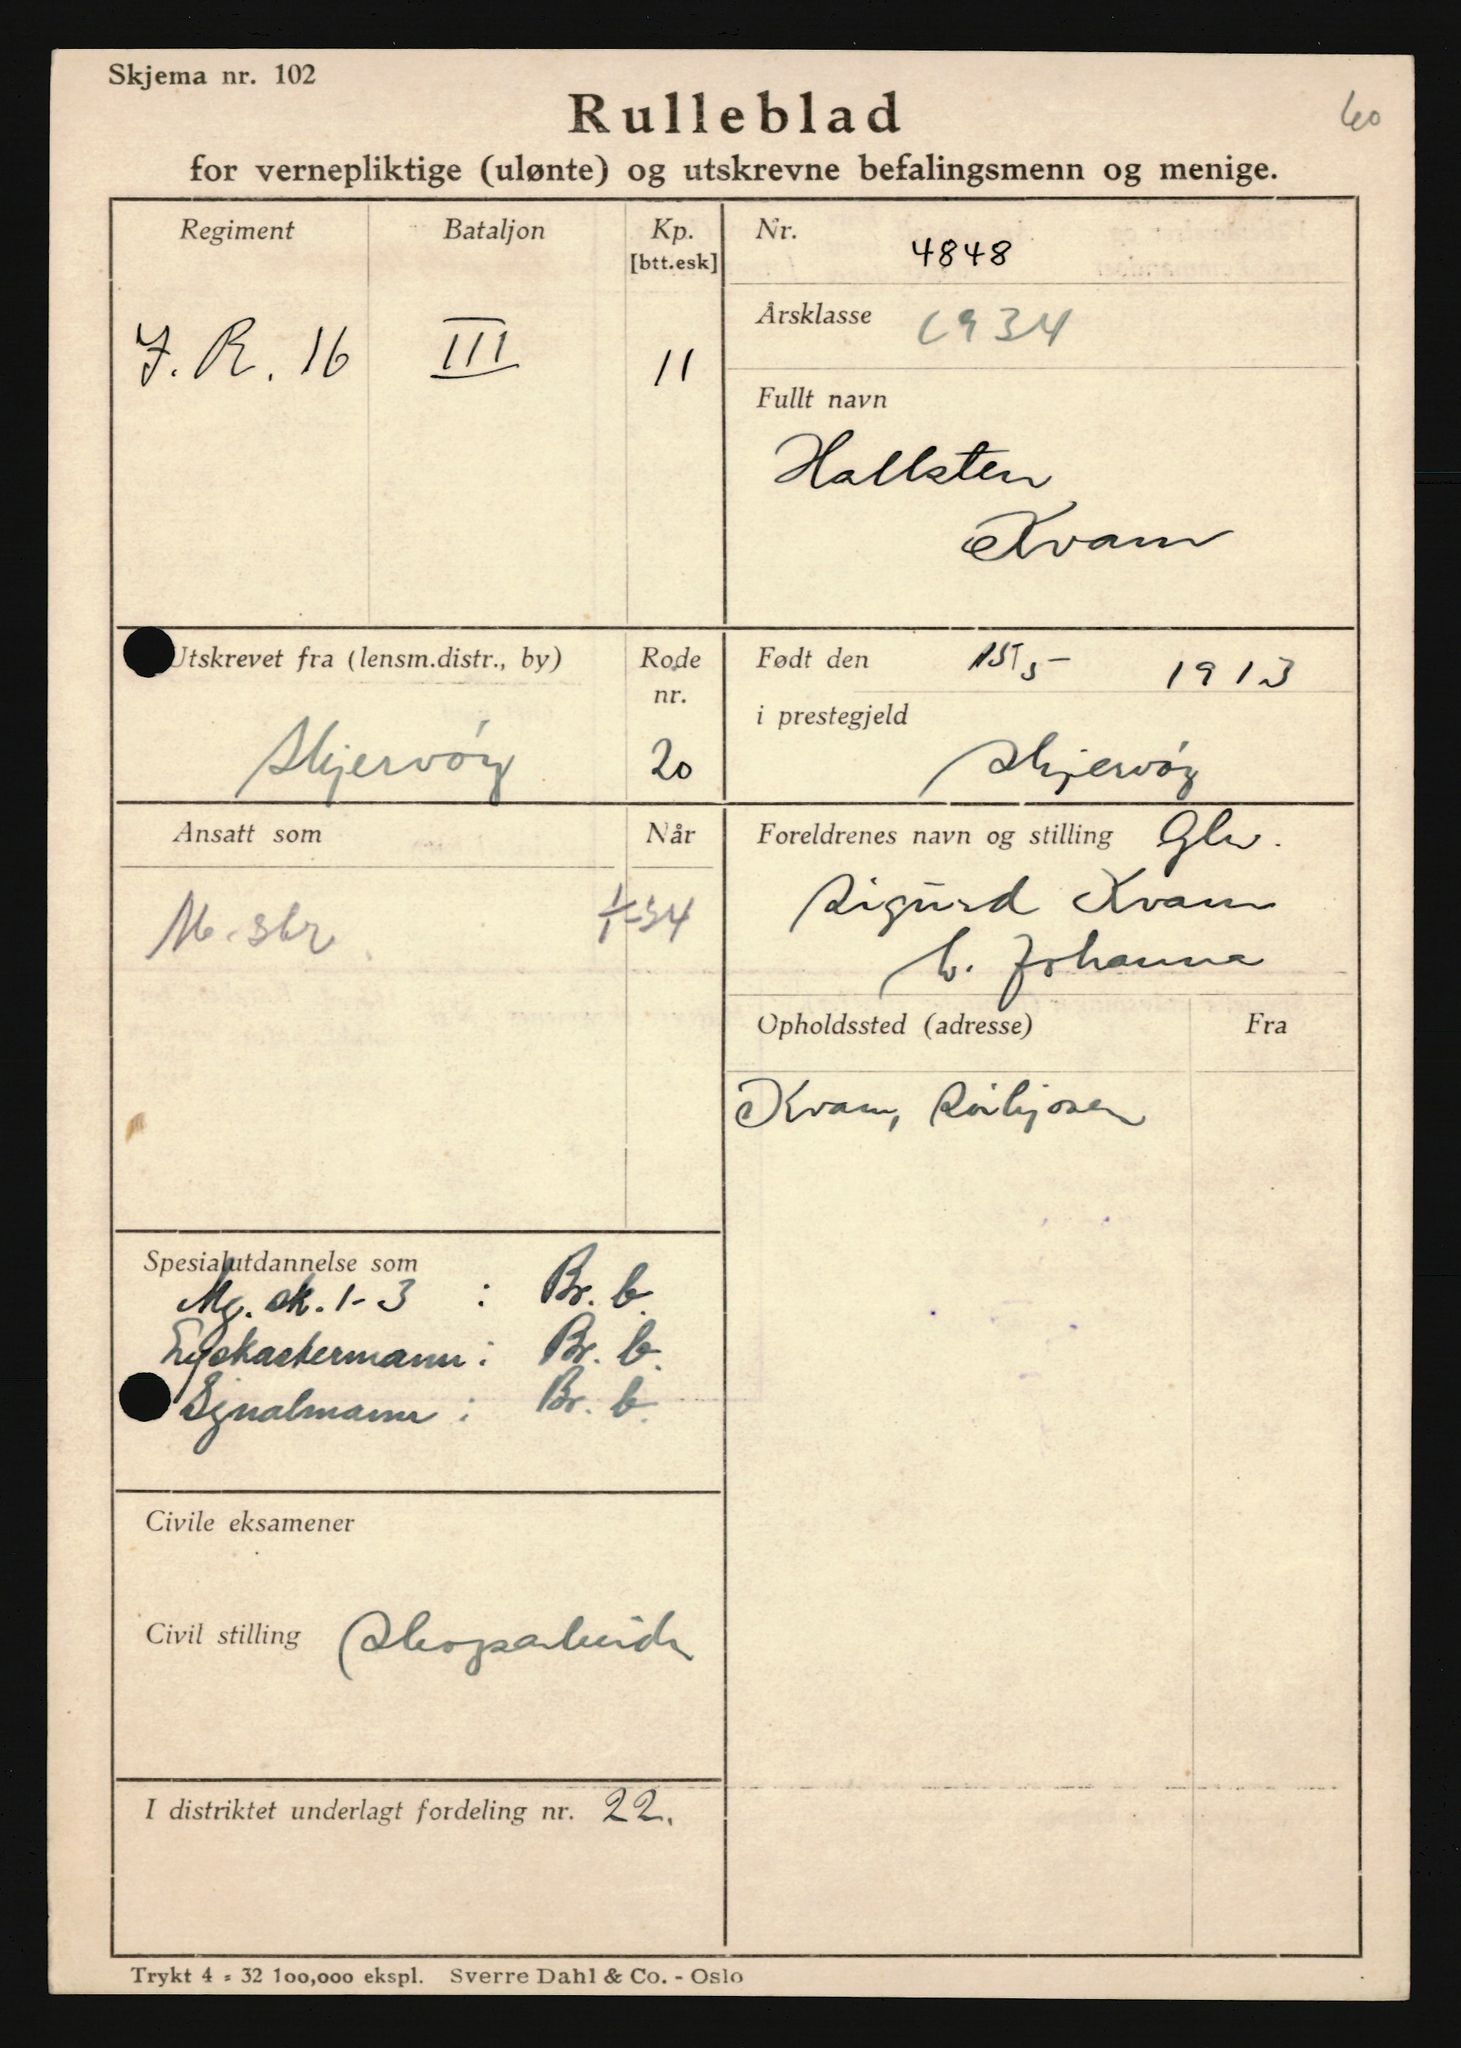 Skjema nr. 102
60
Rulleblad
for vernepliktige (ulønte) og utskrevne befalingsmenn og menige.
Regiment
Bataljon
Kp.
[btt.esk]
J. R. 16
III
11
Nr.
4848
Årsklasse
1934
Fullt navn
Hallsten
Kvam
Utskrevet fra (lensm.distr., by)
Skjervøy
Rode
nr.
20
Født den 15/5- 1913
i prestegjeld
Skjervøy
Ansatt som
Når
M. skr.
1/1-34
Foreldrenes navn og stilling
Sigurd Kvam
h. Johanna
Opholdssted (adresse)
Fra
Kvam,
Spesialutdannelse som
Mg. sk. 1-3 : Br. b.
Lyskastermann : Br. b.
Signalmann : Br. b.
Civile eksamener
Civil stilling Skogsarbeider
I distriktet underlagt fordeling nr. 22.
Trykt 4 - 32 100,000 ekspl. Sverre Dahl & Co. - Oslo